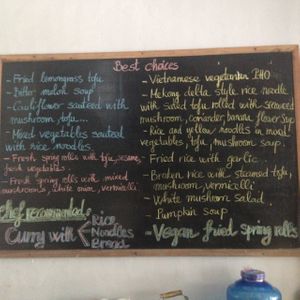 Best choices
- Fried lemongrass tofu
- Bitter melon soup
- Cauliflower sauteed with
mushroom tofu...
- Mixed vegetables sauteed
with rice noodles.
- Fresh spring rolls with tofu, sesame,
fresh vegetables.
- Fresh spring rolls with mixed
mushrooms, white onion, vermicelli
Chef recommended:
Curry with
Rice
Noodles
Bread
- Vietnamese vegetarian
- Mekong delta style rice noodle
with salad tofu rolled with seaweed
mushroom, coriander banana flower soup
- Rice and yellow noodles in mixed
vegetables, tofu, mushroom soup.
- Fried rice with garlic.
- Broken rice with steamed tofu,
mushroom, vermicelli
- White mushroom salad
- Pumpkin soup
- Vegan fried spring rolls